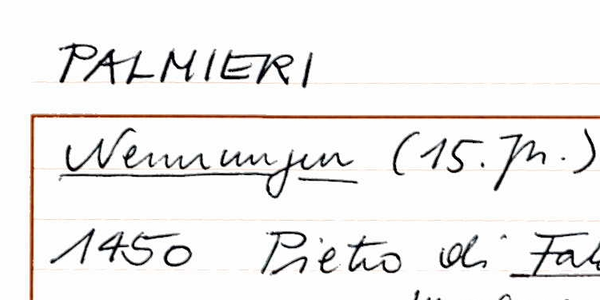 PALMIERI
Nennungen (15. Jh.)
1450 Pietro di